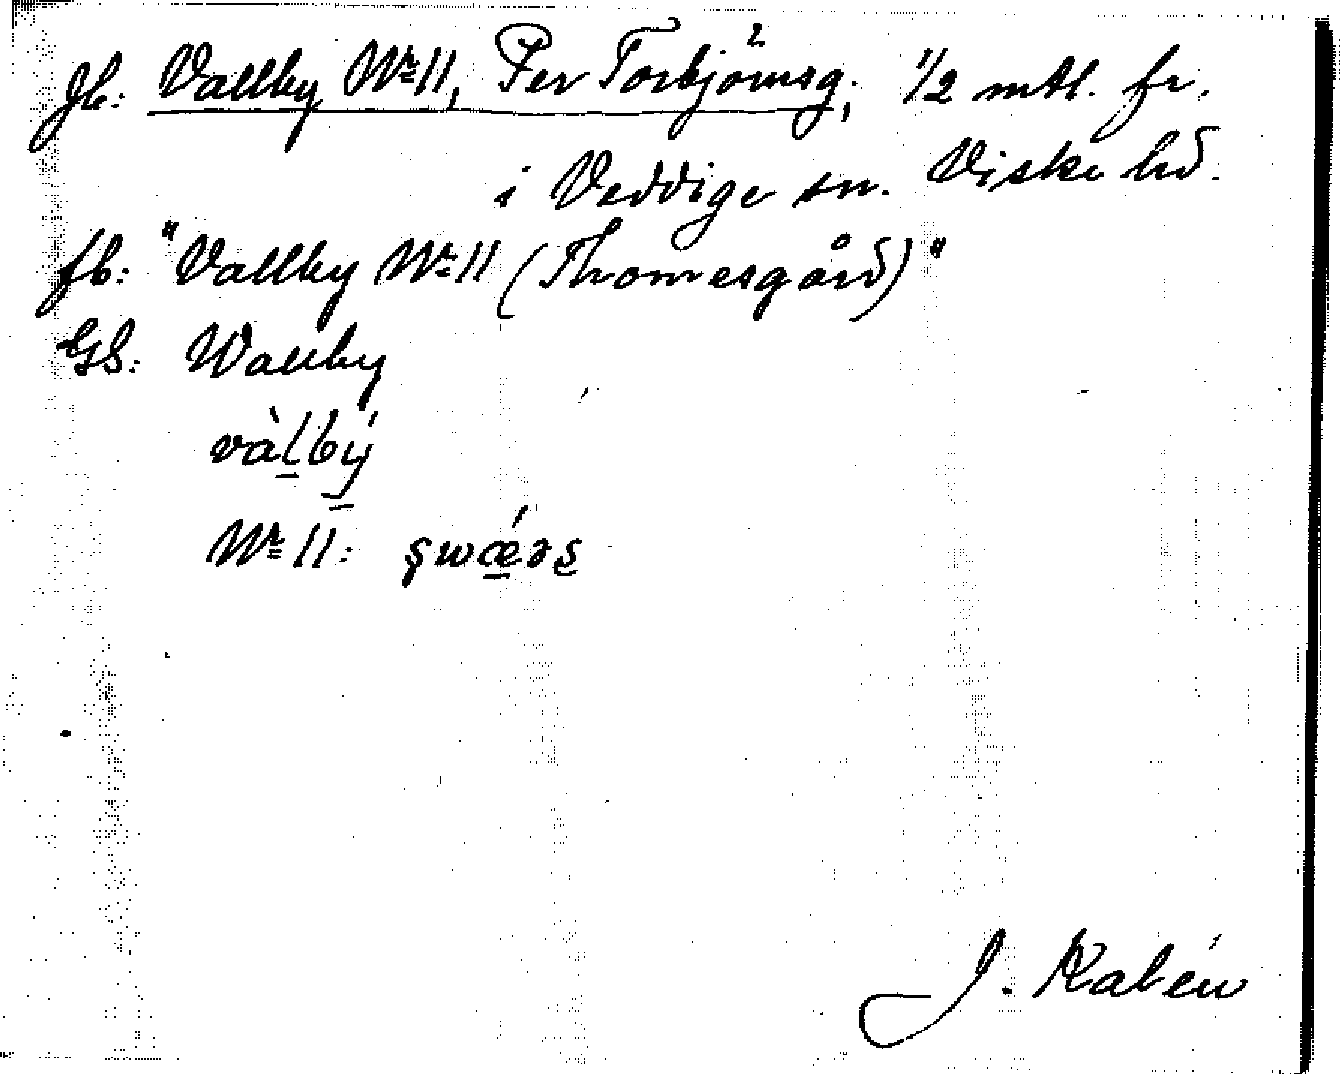 Jb: Vallby Nr 11, Per Torbjörnsg; 1/2 mtl. fr.
i Veddige sn. Viske hd.
fb: "Vallby Nr 11 (Thomesgård)"
GS: Wallby
vàlbý
Nr 11: ʂwǽəʂ
J. Kalén